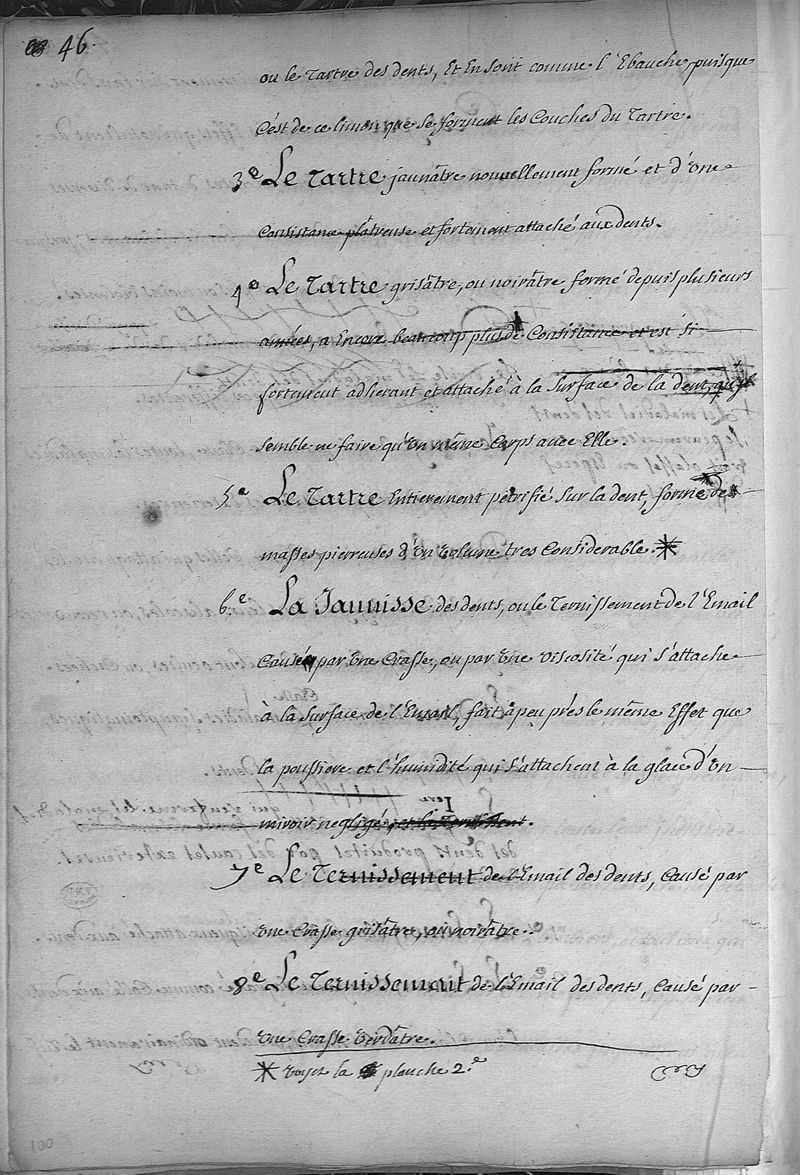 46.
ou le Tartre des dents, Et En sont comme l'Ebauche puisque
C'est de ce limon que se forment les Couches du Tartre.
3e Le Tartre jaunâtre nouvellement formé et d'une
Consistance plâtreuse et fortement attaché aux dents.
4e Le Tartre grisâtre, ou noirâtre formé depuis plusieurs
années, a Encore beaucoup plus de Consistance et est si
fortement adherant et attaché à la Surface de la dent, qu'il
semble ne faire qu'un même Corps avec Elle.
5e Le Tartre Entierement petrifié sur la dent, forme des
masses pierreuses d'un volume tres Considerable. *
6e La Jaunisse des dents, ou le Ternissement de l'Email
Causé par une Crasse, ou par une viscosité qui s'attache
Crasse
à la Surface de l'Email, fait à peu près le même Effet que
la poussiere et l'humidité qui s'attachent à la glace d'un
miroir negligé, et le Ternissent.
7e Le Ternissement de l'Email des dents, Causé par
une Crasse grisâtre, ou noirâtre.
8e Le Ternissement de l'Email des dents, Causé par
une Crasse verdâtre.
* voyez la planche 2.e
100